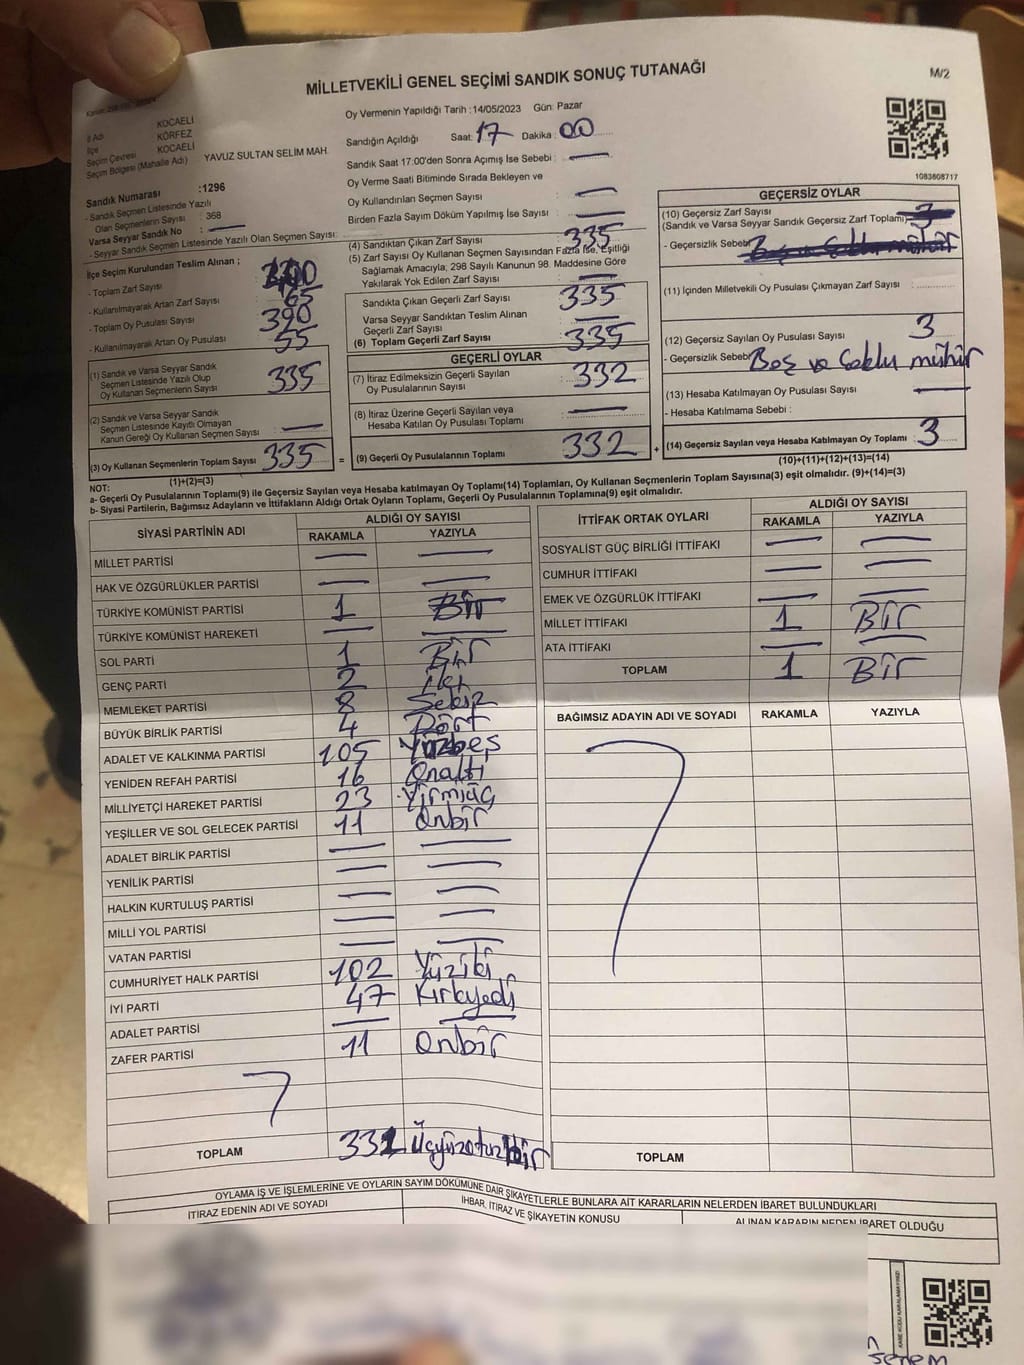 MİLLETVEKİLİ GENEL SEÇİMİ SANDIK SONUÇ TUTANAĞI
M/2
İl Adı KOCAELİ
İlçe KÖRFEZ
Seçim Çevresi KOCAELİ
Seçim Bölgesi (Mahalle Adı) YAVUZ SULTAN SELİM MAH.
Sandık Numarası :1296
- Sandık Seçmen Listesinde Yazılı
Olan Seçmenlerin Sayısı : 368
Varsa Seyyar Sandık No :
- Seyyar Sandık Seçmen Listesinde Yazılı Olan Seçmen Sayısı:
İlçe Seçim Kurulundan Teslim Alınan ;
- Toplam Zarf Sayısı :
- Kullanılmayarak Artan Zarf Sayısı : 65
- Toplam Oy Pusulası Sayısı : 390
- Kullanılmayarak Artan Oy Pusulası : 55
(1) Sandık ve Varsa Seyyar Sandık
Seçmen Listesinde Yazılı Olup
Oy Kullanan Seçmenlerin Sayısı : 335
(2) Sandık ve Varsa Seyyar Sandık
Seçmen Listesinde Kayıtlı Olmayan
Kanun Gereği Oy Kullanan Seçmen Sayısı : —
(3) Oy Kullanan Seçmenlerin Toplam Sayısı 335
(1)+(2)=(3)
Oy Vermenin Yapıldığı Tarih :14/05/2023 Gün: Pazar
Sandığın Açıldığı Saat: 17 Dakika : 00
Sandık Saat 17:00'den Sonra Açımış İse Sebebi : —
Oy Verme Saati Bitiminde Sırada Bekleyen ve
Oy Kullandırılan Seçmen Sayısı : —
Birden Fazla Sayım Döküm Yapılmış İse Sayısı : —
(4) Sandıktan Çıkan Zarf Sayısı : 335
(5) Zarf Sayısı Oy Kullanan Seçmen Sayısından Fazla İse, Eşitliği
Sağlamak Amacıyla, 298 Sayılı Kanunun 98. Maddesine Göre
Yakılarak Yok Edilen Zarf Sayısı : —
Sandıkta Çıkan Geçerli Zarf Sayısı : 335
Varsa Seyyar Sandıktan Teslim Alınan
Geçerli Zarf Sayısı : —
(6) Toplam Geçerli Zarf Sayısı : 335
GEÇERLİ OYLAR
(7) İtiraz Edilmeksizin Geçerli Sayılan
Oy Pusulalarının Sayısı : 332
(8) İtiraz Üzerine Geçerli Sayılan veya
Hesaba Katılan Oy Pusulası Toplamı : —
= (9) Geçerli Oy Pusulalarının Toplamı : 332 +
1083808717
GEÇERSİZ OYLAR
(10) Geçersiz Zarf Sayısı
(Sandık ve Varsa Seyyar Sandık Geçersiz Zarf Toplamı) : 3
- Geçersizlik Sebebi : Boş ve Çoklu mühür
(11) İçinden Milletvekili Oy Pusulası Çıkmayan Zarf Sayısı :
(12) Geçersiz Sayılan Oy Pusulası Sayısı : 3
- Geçersizlik Sebebi : Boş ve Çoklu mühür
(13) Hesaba Katılmayan Oy Pusulası Sayısı : —
- Hesaba Katılmama Sebebi :
(14) Geçersiz Sayılan veya Hesaba Katılmayan Oy Toplamı : 3
(10)+(11)+(12)+(13)=(14)
NOT:
a- Geçerli Oy Pusulalarının Toplamı(9) ile Geçersiz Sayılan veya Hesaba katılmayan Oy Toplamı(14) Toplamları, Oy Kullanan Seçmenlerin Toplam Sayısına(3) eşit olmalıdır. (9)+(14)=(3)
b- Siyasi Partilerin, Bağımsız Adayların ve İttifakların Aldığı Ortak Oyların Toplamı, Geçerli Oy Pusulalarının Toplamına(9) eşit olmalıdır.
SİYASİ PARTİNİN ADI ALDIĞI OY SAYISI
RAKAMLA YAZIYLA
MİLLET PARTİSİ — —
HAK VE ÖZGÜRLÜKLER PARTİSİ — —
TÜRKİYE KOMÜNİST PARTİSİ 1 Bir
TÜRKİYE KOMÜNİST HAREKETİ — —
SOL PARTİ 1 Bir
GENÇ PARTİ 2 İki
MEMLEKET PARTİSİ 8 Sekiz
BÜYÜK BİRLİK PARTİSİ 4 Dört
ADALET VE KALKINMA PARTİSİ 105 Yüzbeş
YENİDEN REFAH PARTİSİ 16 Onaltı
MİLLİYETÇİ HAREKET PARTİSİ 23 Yirmiüç
YEŞİLLER VE SOL GELECEK PARTİSİ 11 Onbir
ADALET BİRLİK PARTİSİ — —
YENİLİK PARTİSİ — —
HALKIN KURTULUŞ PARTİSİ — —
MİLLİ YOL PARTİSİ — —
VATAN PARTİSİ — —
CUMHURİYET HALK PARTİSİ 102 Yüziki
İYİ PARTİ 47 Kırkyedi
ADALET PARTİSİ — —
ZAFER PARTİSİ 11 Onbir
TOPLAM 331 Üçyüzotuzbir
İTTİFAK ORTAK OYLARI ALDIĞI OY SAYISI
RAKAMLA YAZIYLA
SOSYALİST GÜÇ BİRLİĞİ İTTİFAKI — —
CUMHUR İTTİFAKI — —
EMEK VE ÖZGÜRLÜK İTTİFAKI — —
MİLLET İTTİFAKI 1 Bir
ATA İTTİFAKI — —
TOPLAM 1 Bir
BAĞIMSIZ ADAYIN ADI VE SOYADI RAKAMLA YAZIYLA
TOPLAM
OYLAMA İŞ VE İŞLEMLERİNE VE OYLARIN SAYIM DÖKÜMÜNE DAİR ŞİKAYETLERLE BUNLARA AİT KARARLARIN NELERDEN İBARET BULUNDUKLARI
İTİRAZ EDENİN ADI VE SOYADI İHBAR, İTİRAZ VE ŞİKAYETİN KONUSU ALINAN KARARIN NEDEN İBARET OLDUĞU